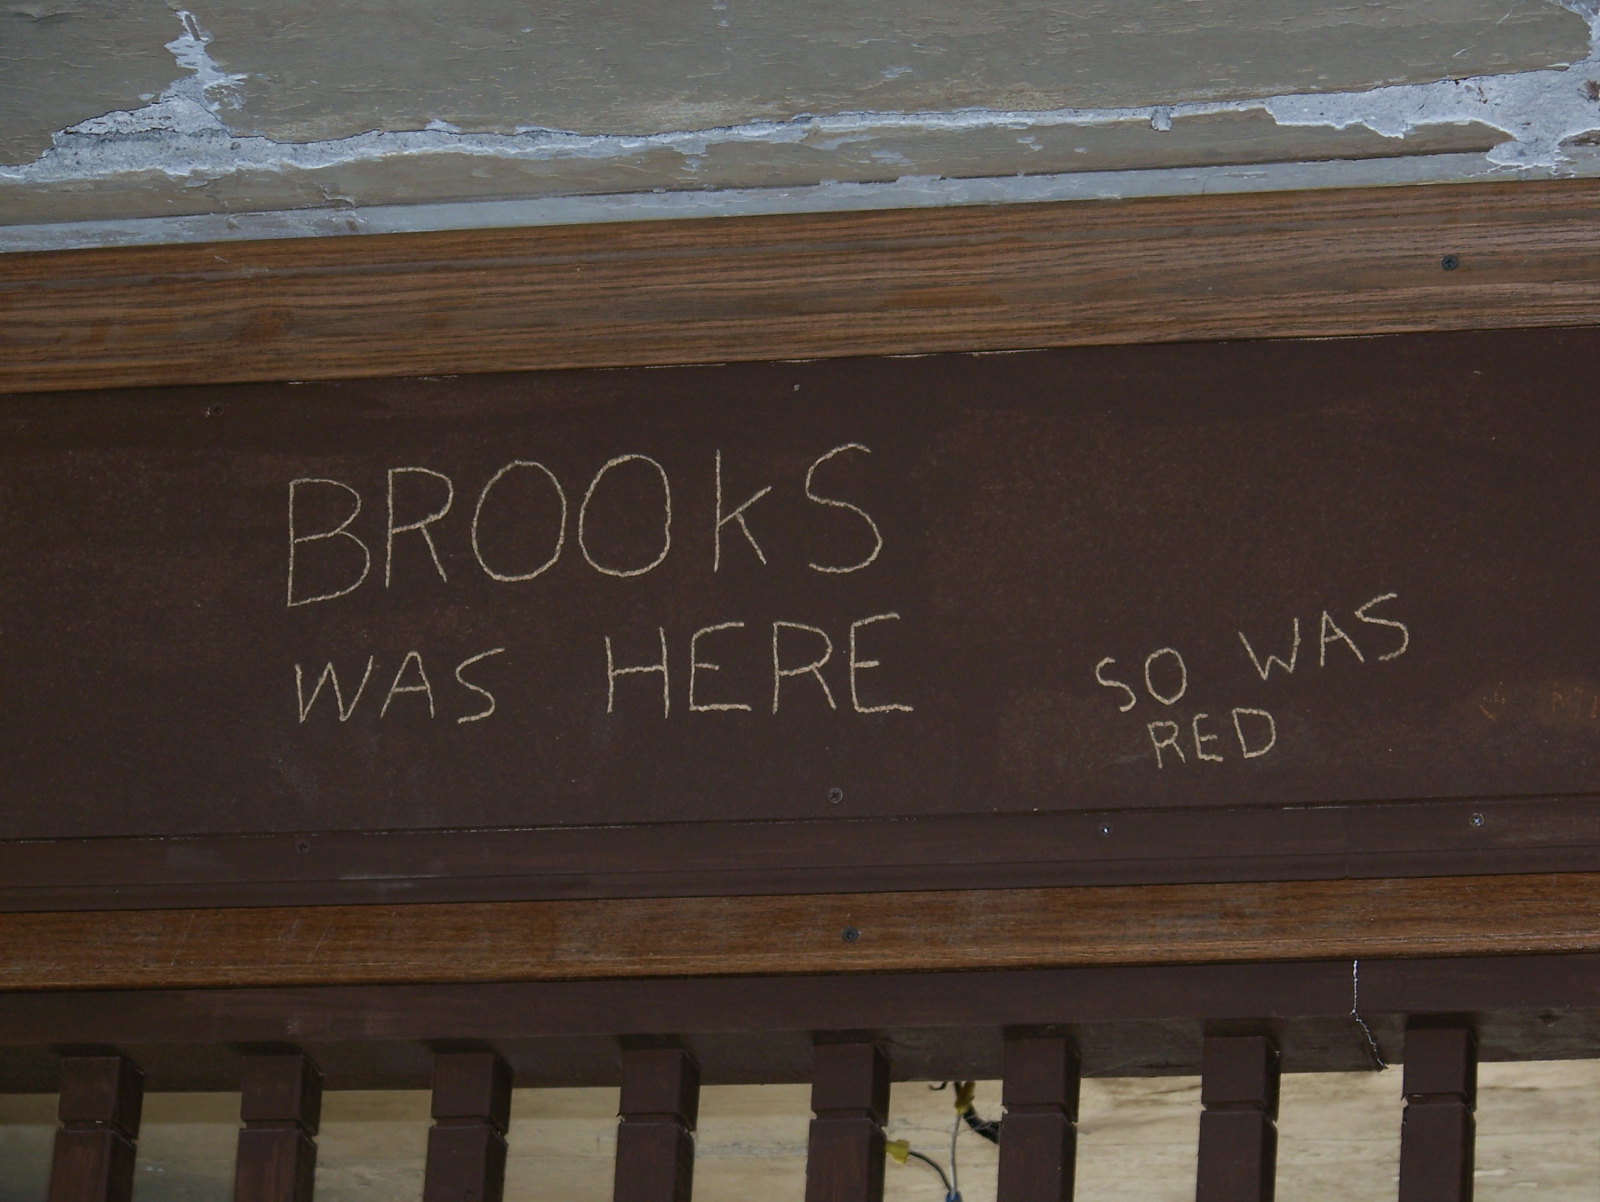 BROOkS
WAS HERE
SO WAS
RED